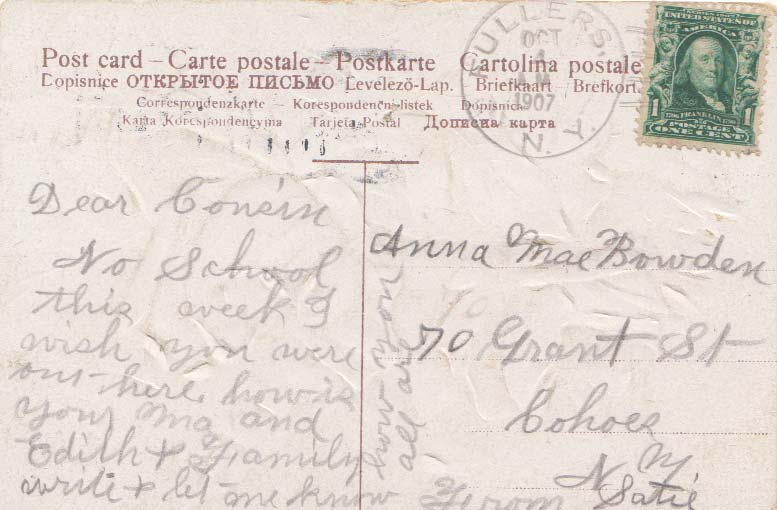 Post card – Carte postale – Postkarte Cartolina postale
Dopisnice ОТКРЫТОЕ ПИСЬМО Levelező-Lap. Briefkaart Brefkort.
Correspondenzkarte – Korespondenční listek Dopisnica
Karta Korespondencyjna Tarjeta Postal Дописна карта
FULLERS,
OCT
4
1907
N. Y.
SERIES 1902
UNITED STATES OF
AMERICA
1
FRANKLIN
POSTAGE
ONE CENT
1
Dear Cousin
No School
this week I
wish you were
out here how is
your Ma and
Edith & Family
write & let me know
how you
all are
From
Satie
Anna Mae Bowden
70 Grant St
Cohoes
N Y